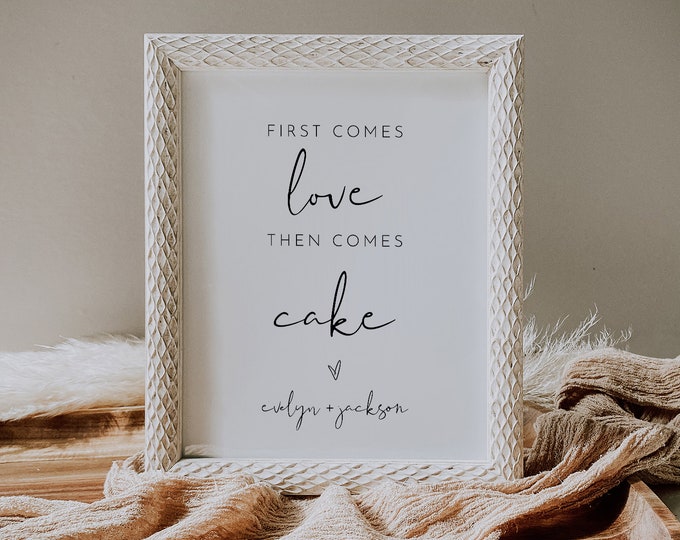 FIRST COMES
love
THEN COMES
cake
evelyn + jackson